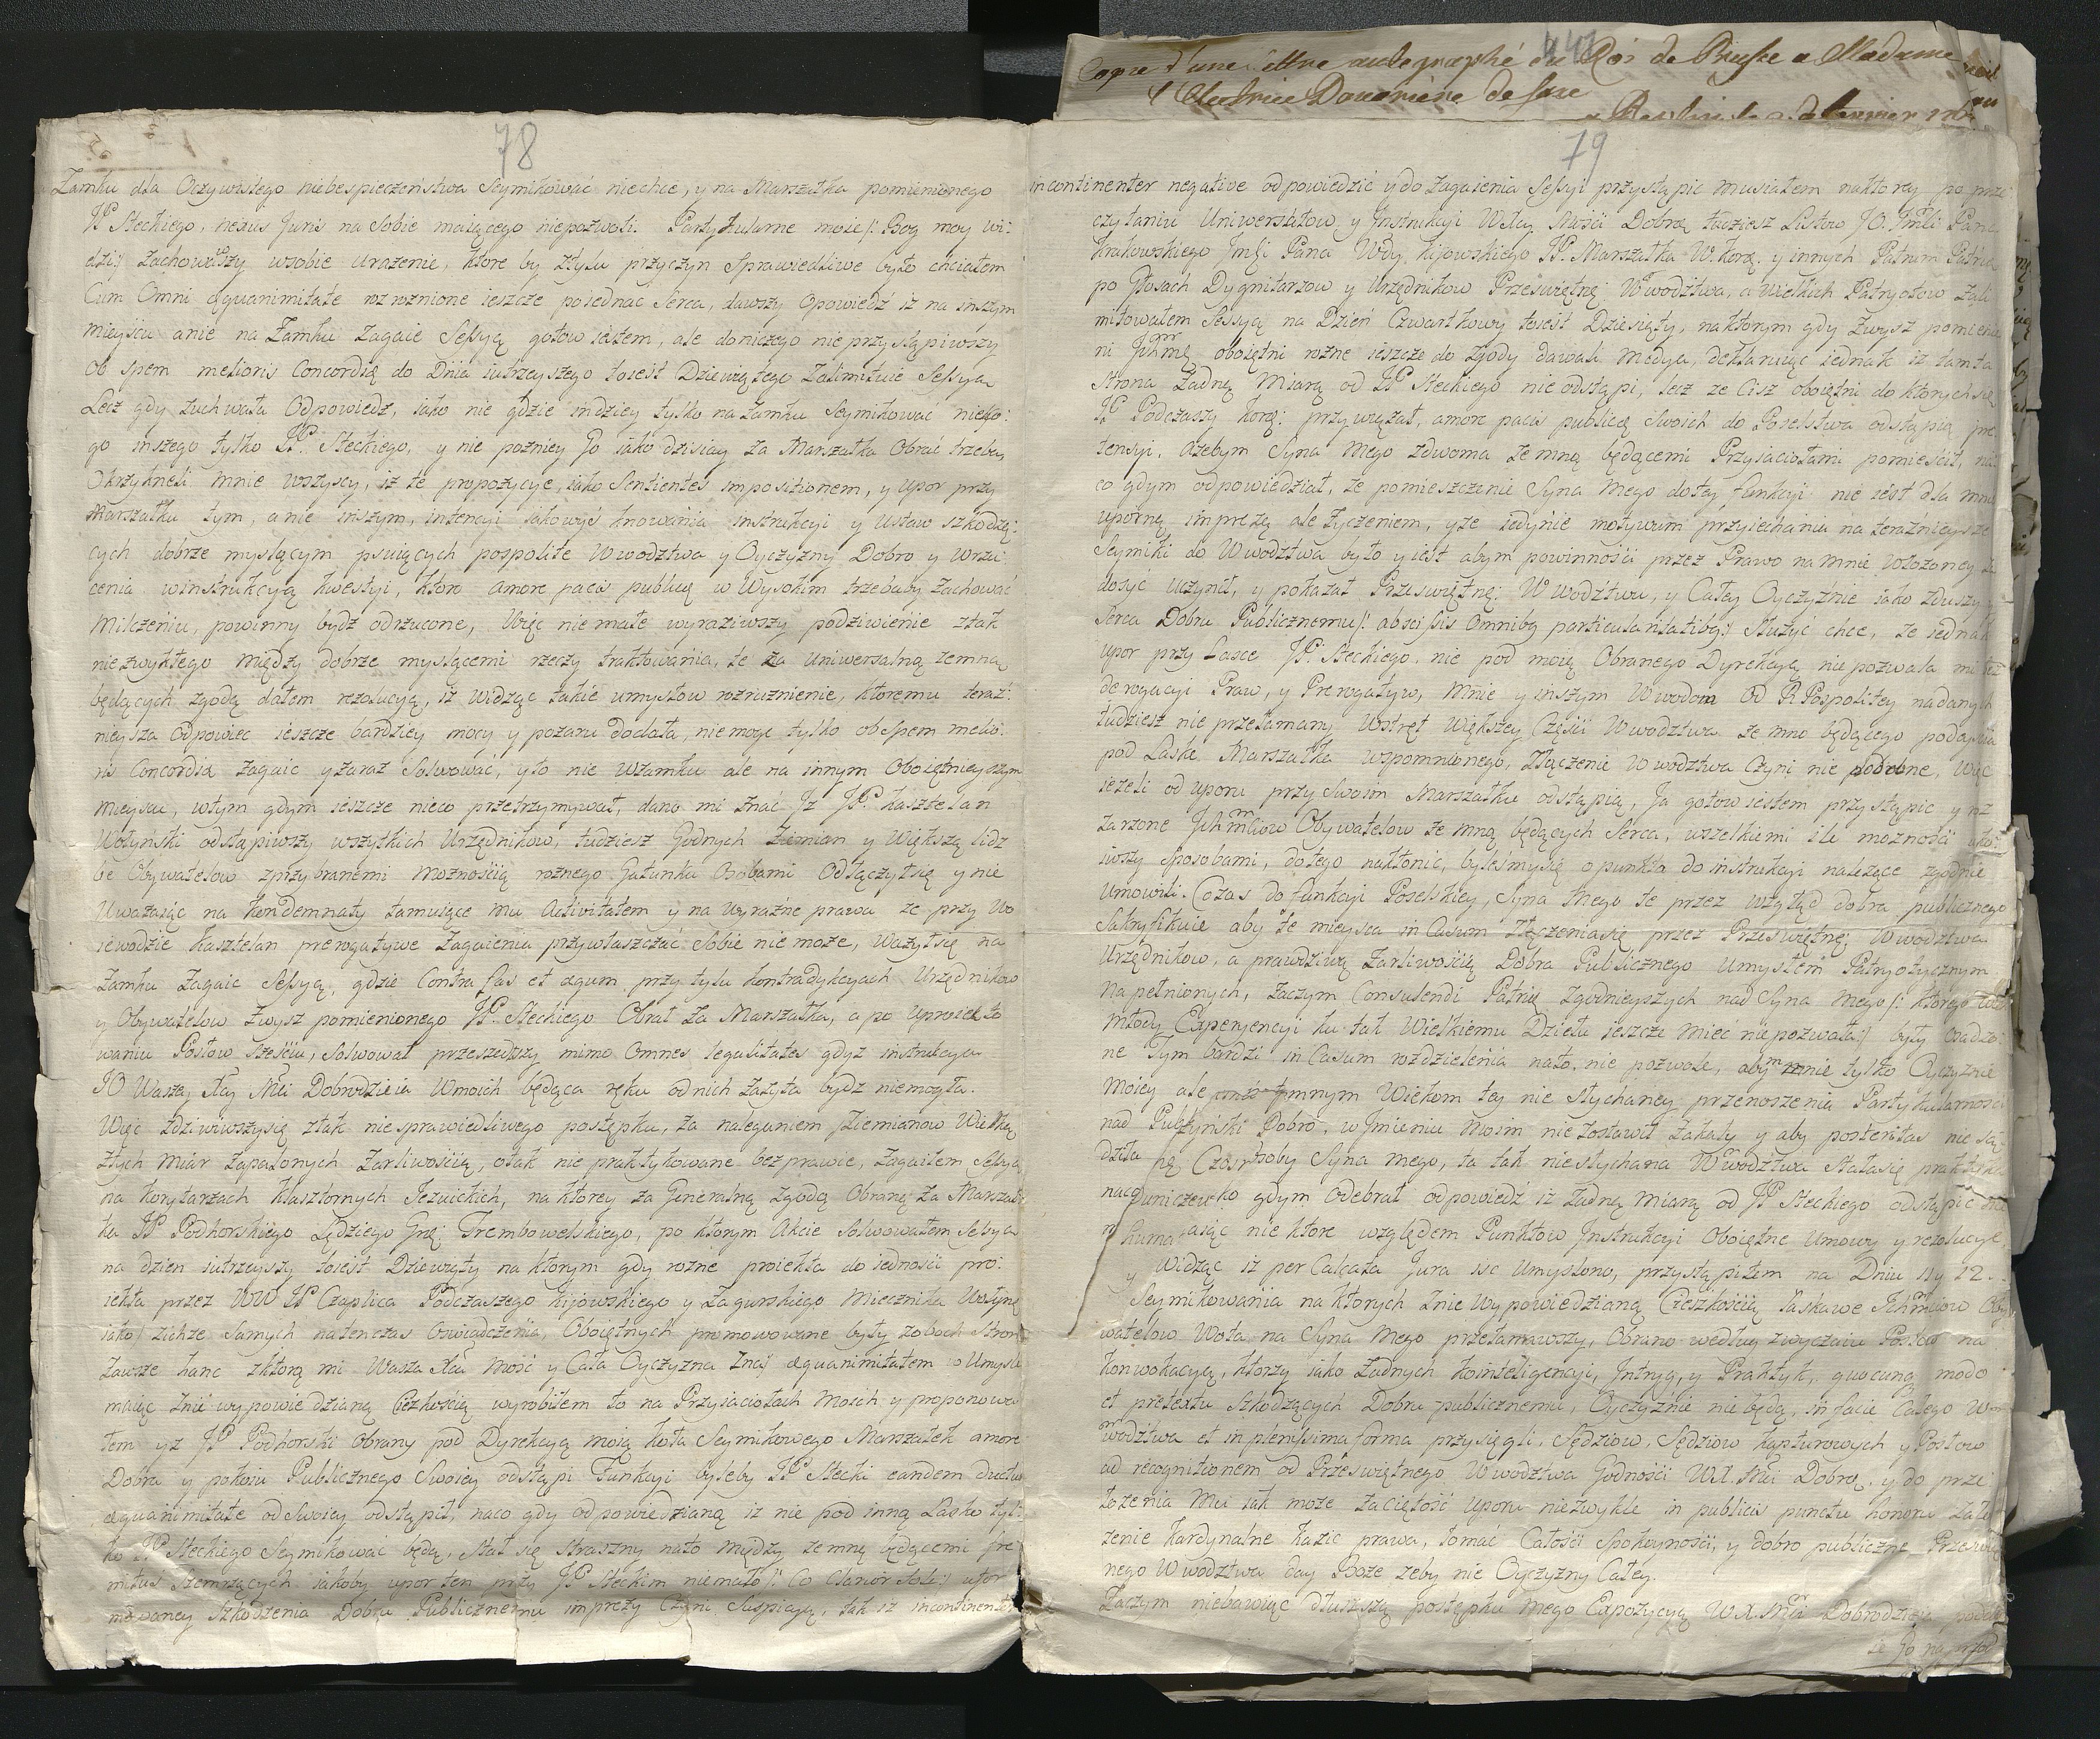 78
Zamku dla Oczywistego niebespieczeństwa Seymikować niechce, y na Marszałka pomienionego
JP Steckiego, nexus Juris na Sobie maiącego niepozwoli. Partykularne moie /: Bog moy wi:
dzi :/ Zachowawszy wsobie Urażenie, ktore by ztylu przyczyn Sprawiedliwe było chciałem
Cum Omni æquanimitate rozroznione ieszcze poiednac Serca, dawszy Opowiedź iz na inszym
mieyscu anie na Zamku Zagaic Sessyą gotow iestem, ale doniczego nie przystąpiwszy
Ob spem melioris Concordiæ do Dnia iutrzeyszego toiest Dziewiątego Zalimituie Sessyą
Lecz gdy zuchwała Odpowiedź, iako nie gdzie indziey tylko na Zamku Seymikować niko:
go inszego tylko JP. Steckiego, y nie pozniey Jo iako dzisiay Za Marszałka Obrać trzeba,
Okrzykneli mnie wszyscy, iz te propozycye, iako Sentientes impositionem, y upor przy
Marszałku tym, a nie inszym, intencyi iakowyś knowania instrukcyi y Ustaw szkodzą:
cych dobrze myslącym psuiących pospolite Wwodztwa y Oyczyzny Dobro y wrzu
cenia winstrukcyą kwestyi, ktore amore pacis publicæ w Wysokim trzebaby Zachować
Milczeniu, powinny bydź odrzucone, Więc nie małe wyraziwszy podziwienie ztak
niezwykłego między dobrze myslącemi rzeczy traktowania, te Za Uniwersalną zemną
będących zgodą dałem rezolucyą, iz widząc takie umysłow rozruznienie, ktoremu teraź:
nieysza Odpowiec ieszcze bardziey mocy y pozaru dodała, niemogę tylko ob spem melio:
ris Concordiæ Zagaic y zaraz Solwować, y to nie wzamku ale na innym Oboiętnieyszym
Mieyscu, wtym gdym ieszcze nieco przetrzymywał, dano mi znać Iz JP. Kasztelan
Wołyński odstąpiwszy wszytkich Urzędnikow, tudziesz Godnych Ziemian y Większą licz
be Obywatelow zprzybranemi moznością roznego Gatunku Osobami Odłączył się y nie
Uważaiąc na kondemnaty tamuiące mu Activitatem y na wyraźne prawa ze przy Wo
iewodzie Kasztelan prerogatywe Zagaienia przywłaszczać Sobie nie może, Ważył się na
Zamku Zagaic Sessyą, gdzie Contra fas et æquum przy tylu kontradykcyach Urzędnikow
y Obywatelow Zwysz pomienionego JP. Steckiego Obrał Za Marszałka, a po Uproiekto
waniu Posłow szesciu, Solwował przeszedszy mimo Omnes legalitates gdyz instrukcya
JO Waszey Xcey Mci Dobrodzieia Wmoich będąca ręku odnich Zażyta bydz niemogła.
Więc zdziwiwszysię ztak niesprawiedliwego postępku, za naleganiem Ziemianow Wielką
Ztych miar zapalonych Zarliwością, otak nie praktykowane bezprawie, Zagaiłem Sessyą
na korytarzach Klasztornych Jezuickich, na ktorey za Generalną Zgodą Obrany Za Marszał
ka JP Podhorskiego Sędziego Grę: Trembowelskiego, po ktorym Akcie Solwowałem Sessyą
na dzien iutrzeyszy toiest Dziewiąty na ktorym gdy rozne proiekta do iednosci pro:
iekta przez WW JP Czaplica Podczaszego Kijowskiego y Zagurskiego Miecznika Wołyn:
iako zichże Samych natenczas Oswiadczenia, Oboiętnych promowowane były zobuch Stron
Zawsze hanc zktorą mi Wasza Xca Mość y Cała Oyczyzna Zna/ æquanimitatem w Umysle
maiąc Znie wypowiedzianą Cięzkością wyrobiłem to na Przyiaciołach Moich y proponowa
łem yz JP Podhorski Obrany pod Dyrekcyą moią koła Seymikowego Marszałek amore
Dobra y pokoiu Publicznego Swoiey odstąpi Funkcyi byleby JP Stecki eandem ductus
æquanimitate od Swoiey odstąpił, naco gdy odpowiedzianą iz nie pod inną Laską tyl:
ko JP Steckiego Seymikować będą, stał się straszny nato między zemną będącemi fre
mitus szemrzących iakoby upor ten przy JP Steckim niemało /: Co Clarior Sole :/ ufor
mowaney Szkodzenia Dobru Publicznemu imprezy Czyni Suspicyą, tak iz incontinenter
447
Copie d'une lettre autographé du Roi de Prusse a Madame
l'Electrice Douairiere de Saxe
79
incontinenter negative odpowiedzić y do Zagaienia Sessyi przystąpic musiałem naktorey po prze
czytaniu Uniwersałow y Instrukcyi WXcey Mości Dobrą tudziesz Listow JO. Jmći Pana
Krakowskiego Jmći Pana Wdy Kijowskiego JP. Marszałka W. Korą. y innych Patrum Patriæ
po Głosach Dygnitarzow y Urzędnikow Przeswiętnę: Wwodztwa, a wielkich Patryotow Zali
mitowałem Sessyą na Dzień Czwartkowy toiest Dziesiąty, naktorym gdy Zwysz pomienie
ni Jchmę oboiętni rozne ieszcze do zgody dawali Medya, deklaruiąc iednak iz tamta
Strona Zadną Miarą od JP Steckiego nie odstąpi, lecz ze Cisz oboiętni do ktorych się
JP Podczaszy Korą: przywiązał, amore pacis publicæ Swoich do Poselstwa odstąpią pre
tensyi, azebym Syna Mego zdwoma ze mną będącemi Przyiaciołami pomieścił, na
co gdym odpowiedział, ze pomieszczenie Syna Mego do tey funkcyi nie iest dla mnie
uporną imprezą ale Zyczeniem, y ze iedynie motywum przyiechania na teraźnieysze
Seymiki do Wwodztwa było y iest abym powinności przez Prawo na mnie włożoney
dosyć uczynił, y pokazał Przeswiętnę: Wwodztwu, y Całey Oyczyźnie iako zduszy y
Serca Dobru Publicznemu /: abscissis Omnibą particularitatibą :/ Służyć chce, ze iednak
upor przy Lasce JP. Steckiego, nie pod moią Obranego Dyrekcyą nie pozwala mi bez
derogacyi Praw, y Prerogatyw, Mnie y inszym Wwodom Od RPospolitey nadanych
tudziesz nieprzełamany Wstręt większey Części Wwodztwa ze mno będącego podayścia
pod Laskę Marszałka wspomnionego, Złączenie Wwodztwa Czyni nie podobne, Więc
iezeli od uporu przy Swoim Marszałku odstąpią, Ja gotow iestem przystąpic y roz
zarzone Jchmciow Obywatelow ze mną będących Serca, wszelkiemi ile moznosci
siwszy Sposobami, dotego nakłonic, byleśmysię o punkta do instrukcyi należące zgodnie
Umowili. Czas do funkcyi Poselskiey, Syna Mego te przez wzgląd dobra publicznego
Sakryfikuie aby te mieysca in Casum Złączeniasię przez Przeswiętnę: Wwodztwa
Urzędnikow, a prawdziwą Zarliwością Dobra Publicznego Umysłem Patryotycznym
Napełnionych, Zaczym Consulendi Patriæ Zgodnieyszych nad Syna Mego /: ktorego
młody Experyencyi ku tak Wielkiemu Dziełu ieszcze Mieć nie pozwala :/ były
ne Tym bardzi in Casum rozdzielenia nato nie pozwolę, abym nie tylko Oyczyznie
Moiey ale innym Wiekom tey nie słychaney przenoszenia Partykularnosci
nad Publ Dobro, w Imieniu Moim nie zostawił Zakały y aby posteritas nie
dziła Syna Mego, ta tak niesłychana Wwodztwa Stała się
naco gdym Odebrał odpowiedź iz Zadną miarą od JP Steckiego odstąpic nie
nie ktore względem Punktow Instrukcyi Oboiętne Umowy y rezolucye
y Widząc iz per Calcata Jura isc Umyslono, przystąpiłem na Dniu 11 y 12.
Seymikowania na ktorych Znie Wypowiedzianą Cieszkością łaskawe Ichmciow Oby
watelow Wota na Syna Mego przełamawszy, Obrano według zwyczaiu Posłow na
Konwokacyą, ktorzy iako Zadnych kointeligencyi, Intryg, y Praktyk, quocunq modo
et pretextu Szkodzących Dobru publicznemu, Oyczyźnie nie będą, in facie Całego W
wodztwa et in plenissima forma przysięgli, Sędziow, Sędziow kapturowych y Posłow
ad recognitionem od Przeswiętnego Wwodztwa Godności WX. Mci Dobrą. y do prze
łozenia Mu iak może Zaciętość Uporu niezwykłe in publicis punctu honoru zało
żenie kardynalne kazic prawa, łomać Całości Spokoyności, y dobro publiczne Przeswię
nego Wwodztwa day Boze zeby nie Oyczyzny Całey.
Zaczym niebawiąc dłuższą postępku Mego Expozycyą W.X. Mci Dobrodzieia